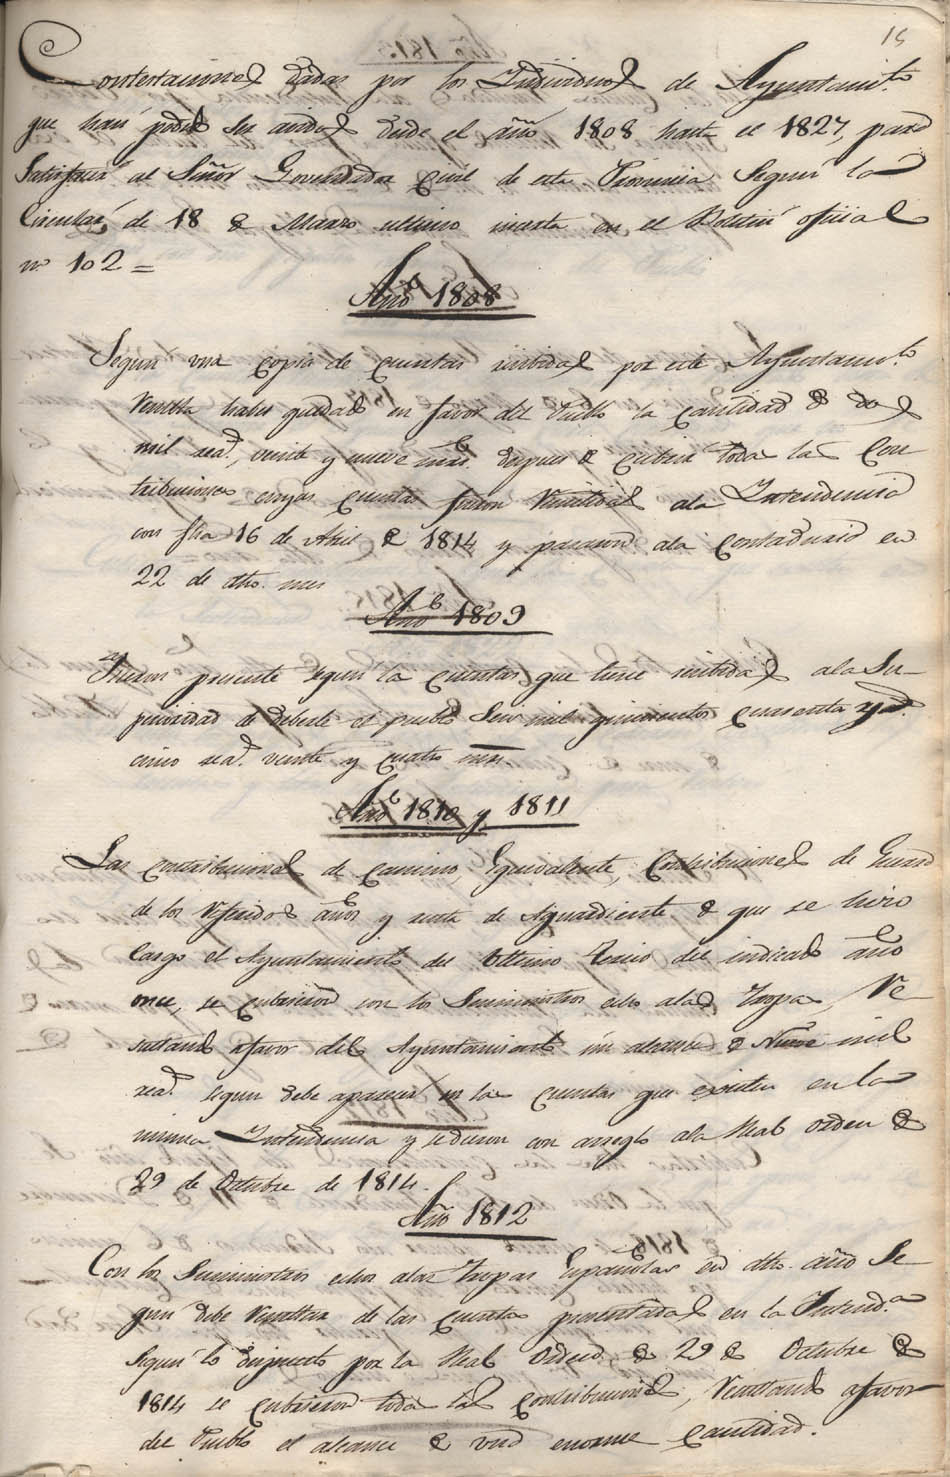 15
Contestaciones dadas por los Individuos de Ayuntamto.
que han podido ser avidos desde el año 1808 hasta el 1827, para
Satisfacer al Señor Governador Civil de esta Provincia Segun la
Circular de 18 de Marzo ultimo inserta en el Boletin oficial
no 102=
Año 1808
Segun una copia de cuentas rendidas por este Ayuntamto.
resulta haber quedado en favor del Pueblo la cantidad de dos
mil reas., veinte y nueve mrs. despues de cubrir todas las Con
tribuciones cuyas cuentas fueron remitidas ala Intendencia
con fha 16 de Abril de 1814 y pasaron ala contaduria en
22 de dho. mes
Año 1809
presente segun las cuentas que tiene rendidas ala Su-
perioridad de deberle el pueblo Seis mil quinientos cuarenta y
cinco reas. veinte y cuatro mrs.
Año 1810 y 1811
Las contribuciones de camino, Equivalente, Contribuciones de Guerra
de los referidos años y renta de Aguardiente de que se hizo
cargo el Ayuntamiento del ultimo Tercio del indicado año
once, se cubrieron con los Suministros echos alas Tropas, Re-
sultando afavor del Ayuntamiento un alcance de Nueve mil
reas. segun debe aparecer en las cuentas que existen en la
misma Intendencia y se dieron con arreglo ala Real orden de
29 de Octubre de 1814.
Año 1812
Con los Suministros echos alas Tropas Españolas en dho. año Se-
gun debe resultar de las cuentas presentadas en la Intenda.
Segun lo dispuesto por la Real Orden de 29 de Octubre de
1814 se cubrieron todas las contribuciones, Resultando afavor
del Pueblo el alcance de una enorme cantidad.